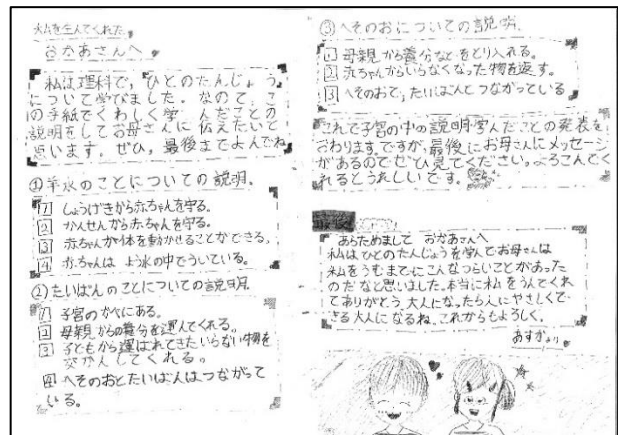 私を生んでくれた。
おかあさんへ。
私は理科で、ひとのたんじょう
について学びました。なので、こ
の手紙でくわしく学んだことの
説明をしてお母さんに伝えたいと
思います。ぜひ、最後までよんでね
①羊水のことについての説明。
1 しょうげきから赤ちゃんを守る。
2 かんせんから赤ちゃんを守る。
3 赤ちゃんが体を動かせることができる。
4 赤ちゃんは よう水の中でういている。
②たいばんのことについての説明
1 子宮のかべにある。
2 母親からの養分を運んでくれる。
3 子どもから運ばれてきたいらない物を
交かんしてくれる。
4 へそのおとたいばんはつながって
いる。
③へそのおについての説明。
1 母親から養分などをとり入れる。
2 赤ちゃんからいらなくなった物を返す。
3 へそのおで、たいばんとつながっている
これで子宮の中の説明学んだことの発表を
おわります。ですが、最後にお母さんにメッセージ
があるのでぜひ見てください。よろこんでく
れるとうれしいです。
最後
あらためまして おかあさんへ
私はひとのたんじょうを学んでお母さんは
私をうむまでにこんなつらいことがあった
のだなと思いました。本当に私をうんでくれ
てありがとう。大人になったら人にやさしくで
きる大人になるね。これからもよろしく。
あすかより。